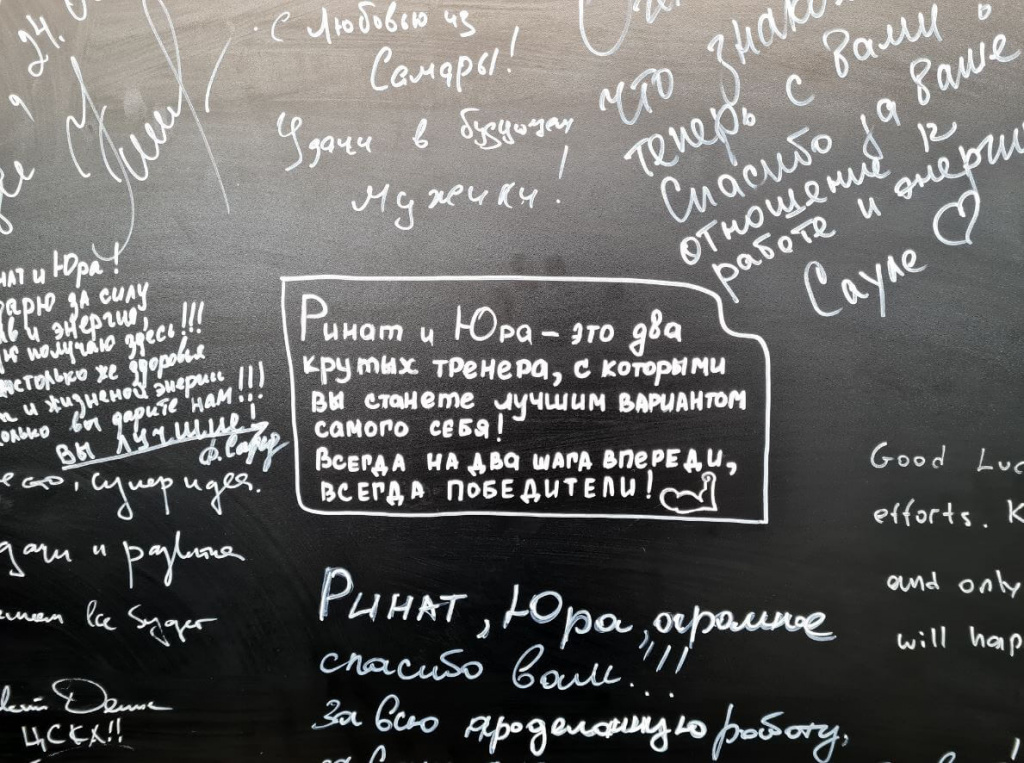 24.
С Любовью из
Самары!
Удачи в будущем
мужчики!
что
теперь с вами
Спасибо за ваше
отношение к
работе и энерги
Сауле
нат и Юра!
арю за силу
и энергию,
ю получаю здесь!!!
настолько же здоровья
и жизненой энергии
олько вы дарите нам!!!
Вы лучшие!
Ринат и Юра – это два
крутых тренера, с которыми
вы станете лучшим вариантом
самого себя!
Всегда на два шага впереди,
всегда победители!
супер идея.
дачи и развития
все будет
ЦСКА!!
Ринат, Юра, огромное
спасибо вам!!!
За всю проделанную работу,
Good Luc
efforts. K
and only
will hap